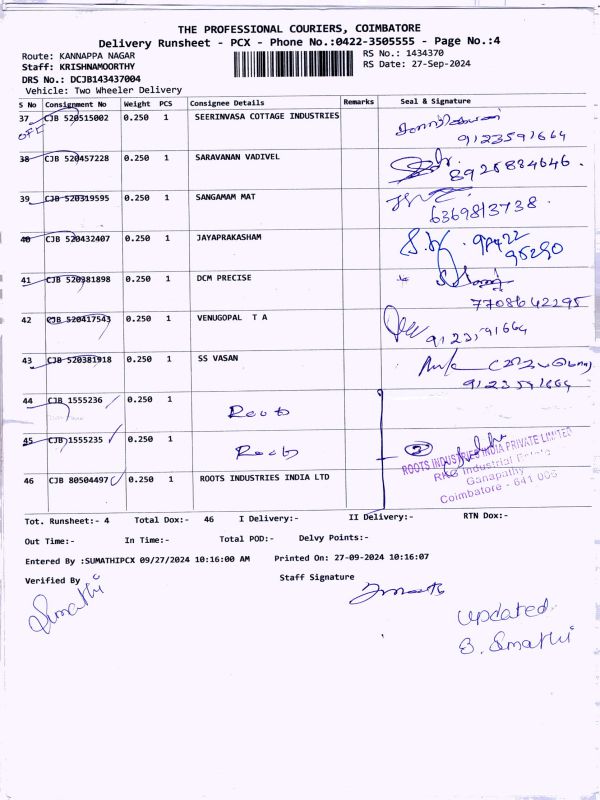 THE PROFESSIONAL COURIERS, COIMBATORE
Delivery Runsheet - PCX - Phone No.:0422-3505555 - Page No.:4
Route: KANNAPPA NAGAR RS No.: 1434370
Staff: KRISHNAMOORTHY RS Date: 27-Sep-2024
DRS No.: DCJB143437004
Vehicle: Two Wheeler Delivery
S No Consignment No Weight PCS Consignee Details Remarks Seal & Signature
37 CJB 520515002 0.250 1 SEERINVASA COTTAGE INDUSTRIES
off 9123591664
38 CJB 520457228 0.250 1 SARAVANAN VADIVEL
8925834646.
39 CJB 520319595 0.250 1 SANGAMAM MAT
6369813738.
40 CJB 520432407 0.250 1 JAYAPRAKASHAM
96290
41 CJB 520381898 0.250 1 DCM PRECISE
7708642295
42 CJB 520417543 0.250 1 VENUGOPAL T A
9123591664
43 CJB 520381918 0.250 1 SS VASAN
9123591664
44 CJB 1555236 0.250 1
Roots
45 CJB 1555235 0.250 1 Roots 2
ROOTS INDUSTRIES INDIA PRIVATE LIMITED
RKG Industrial Estate
Ganapathy
Coimbatore - 641 006
46 CJB 80504497 0.250 1 ROOTS INDUSTRIES INDIA LTD
Tot. Runsheet:- 4 Total Dox:- 46 I Delivery:- II Delivery:- RTN Dox:-
Out Time:- In Time:- Total POD:- Delvy Points:-
Entered By :SUMATHIPCX 09/27/2024 10:16:00 AM Printed On: 27-09-2024 10:16:07
Verified By Staff Signature
Sumathi
updated
B. Sumathi